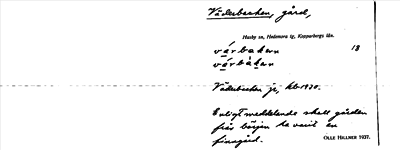 Väderbacken, gård,
Husby sn, Hedemora tg, Kopparbergs län.
várbakan 18
várbåkan
Väderbacken je, kb 1930.
Enligt meddelande skall gården
från början ha varit en
finngård.
OLLE HILLNER 1937.